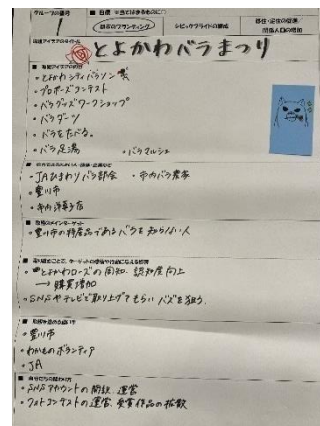 グループの番号
1
都市のブランディング
シビックプライドの醸成
移住・定住の促進
関係人口の増加
とよかわバラまつり
・とよかわシティバラソン
・プロポーズコンテスト
・バラグッズワークショップ
・バラダーツ
・バラをたべる。
・バラ足湯
・バラマルシェ
・JAひまわりバラ部会
・市内バラ農家
・豊川市
・市内洋菓子店
・豊川市の特産品であるバラを知らない人
・とよかわローズの周知、認知度向上
→ 購買増加
・SNSやテレビで取り上げてもらいバズを狙う。
・豊川市
・わかものボランティア
・JA
・SNSアカウントの開設、運営
・フォトコンテストの運営、受賞作品の拡散